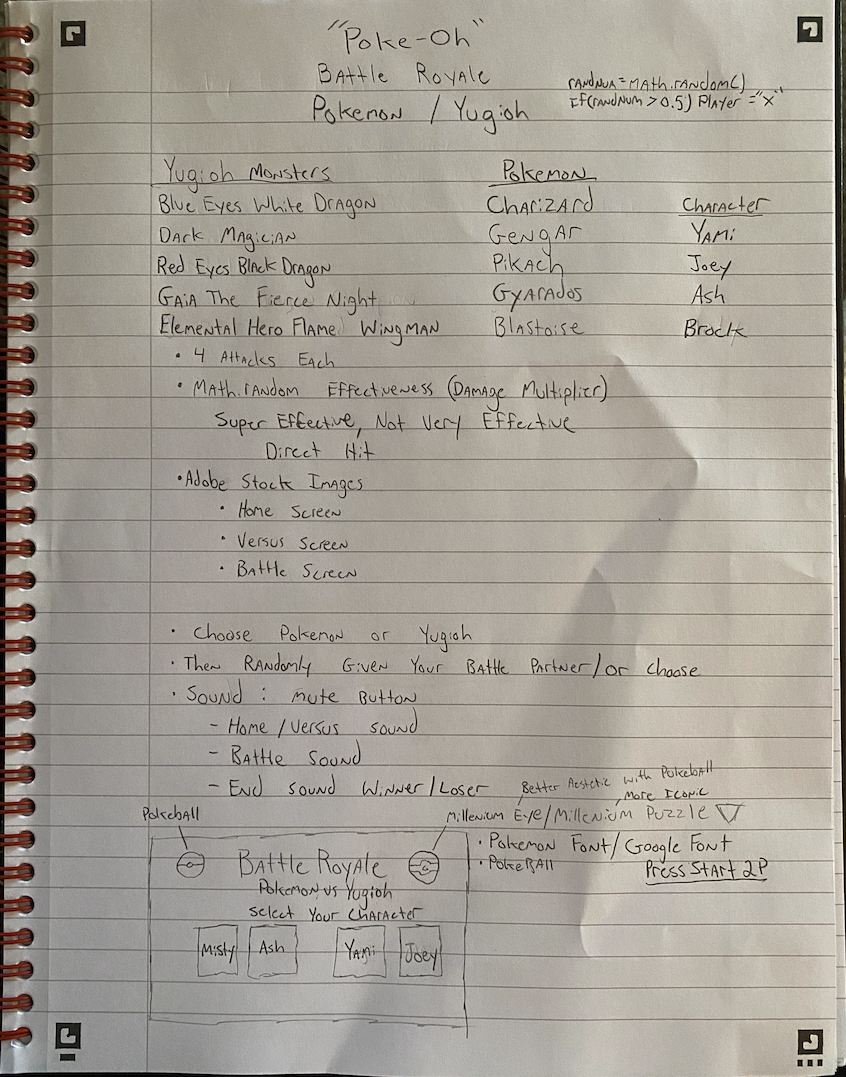 "Poke-Oh"
Battle Royale
Pokemon / Yugioh
randnum = Math.random()
If(randnum > 0.5) Player = "X"
Yugioh Monsters
Pokemon
Blue Eyes White Dragon
Charizard
Character
Dark Magician
Gengar
Yami
Red Eyes Black Dragon
Pikach
Joey
Gaia The Fierce Night
Gyarados
Ash
Elemental Hero Flame Wingman
Blastoise
Brock
• 4 Attacks Each
• Math.random Effectiveness (Damage Multiplier)
Super Effective, Not Very Effective
Direct Hit
• Adobe Stock Images
• Home Screen
• Versus Screen
• Battle Screen
• Choose Pokemon or Yugioh
• Then Randomly Given Your Battle Partner/or choose
• Sound : mute Button
- Home / Versus sound
- Battle Sound
- End sound Winner/Loser
Better Aestetic with Pokeball
, More Iconic
Pokeball
Millenium Eye/Millenium Puzzle
• Pokemon Font/Google Font
• PokeBall
Press Start 2P
Battle Royale
Pokemon vs Yugioh
Select Your Character
Misty
Ash
Yami
Joey